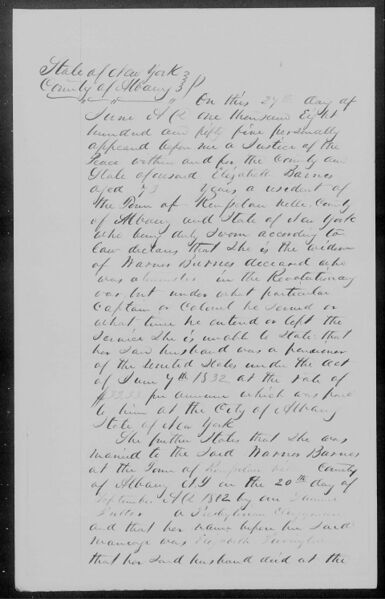 State of New York }
County of Albany } SS
On this 27th day of
June AD one thousand Eight
hundred and fifty five personally
appeared before me a Justice of the
Peace within and for the County and
State aforesaid Elizabeth Barnes
aged 73 Years a resident of
the Town of County
of Albany and State of New York
who being duly sworn according to
law declares that She is the widow
of Warner Barnes deceased who
was a in the Revolutionary
war but under what particular
Captain or Colonel he served or
what time he entered or left the
Service She is unable to State that
her Said husband was a pensioner
of the United States under the act
of June 7th 1832 at the rate of
per annum which was paid
to him at the City of Albany
State of New York
She further States that She was
married to the Said Warner Barnes
at the Town of County
of Albany NY on the 20th day of
September AD 1802 by one
a Presbyterian Clergyman
and that her name before her Said
marriage was Elizabeth
that her Said husband died at the